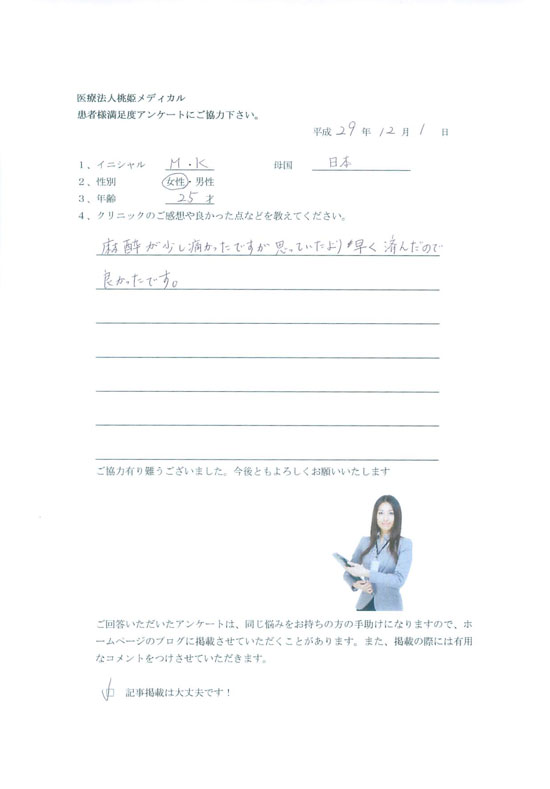 医療法人桃姫メディカル
患者様満足度アンケートにご協力下さい。
平成 29 年 12 月 1 日
1、イニシャル M・K 母国 日本
2、性別 女性・男性
3、年齢 25 才
4、クリニックのご感想や良かった点などを教えてください。
麻酔が少し痛かったですが思っていたより早く済んだので
良かったです。
ご協力有り難うございました。今後ともよろしくお願いいたします
ご回答いただいたアンケートは、同じ悩みをお持ちの方の手助けになりますので、ホ
ームページのブログに掲載させていただくことがあります。また、掲載の際には有用
なコメントをつけさせていただきます。
記事掲載は大丈夫です！